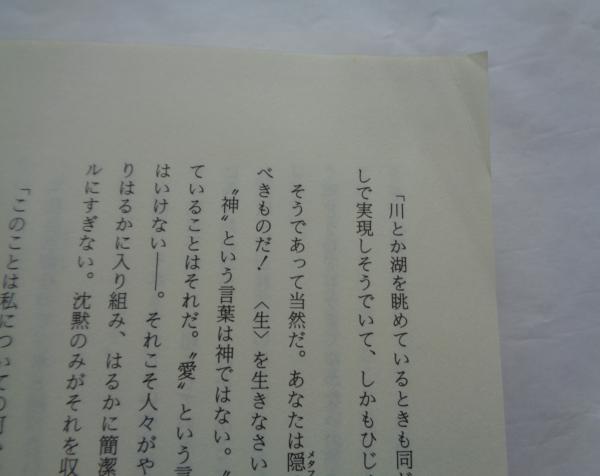 「川とか湖を眺めているときも同じ
しで実現しそうでいて、しかもひじ
そうであって当然だ。あなたは隠
メタフ
べきものだ！　〈生〉を生きなさい
〝神〟という言葉は神ではない。〝
ていることはそれだ。〝愛〟という言
はいけない――。それこそ人々がや
りはるかに入り組み、はるかに簡潔
ルにすぎない。沈黙のみがそれを収
「このことは私についての何